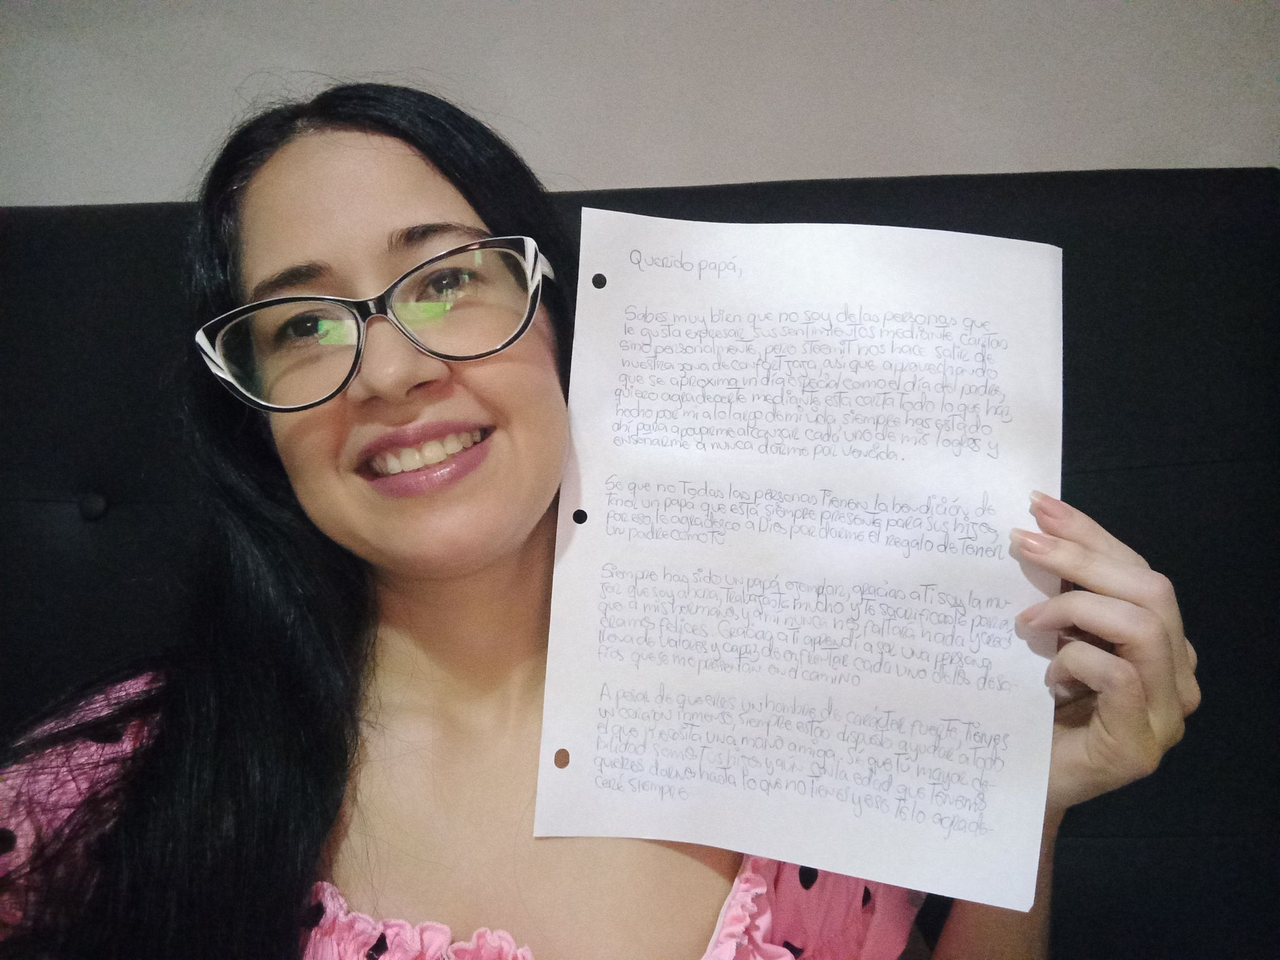 Querido papá,
Sabes muy bien que no soy de las personas que
le gusta expresar sus sentimientos mediante cartas
sino personalmente, pero steemit nos hace salir de
nuestra zona de confort jaja, así que aprovechando
que se aproxima un día especial como el día del padre,
quiero agradecerte mediante esta carta todo lo que haz
hecho por mi a lo largo de mi vida siempre has estado
ahí para apoyarme alcanzar cada uno de mis logros y
enseñarme a nunca darme por vencida.
Se que no todas las personas tienen la bendición de
tener un papá que está siempre presente para sus hijos,
por eso le agradezco a Dios por darme el regalo de tener
un padre como tú
Siempre has sido un papá ejemplar, gracias a ti soy la mu-
jer que soy ahora, trabajaste mucho y te sacrificaste para
que a mis hermanos y a mi nunca nos faltara nada y
éramos felices. Gracias a ti aprendí a ser una persona
llena de valores y capaz de enfrentar cada uno de los desa-
fíos que se me presentan en el camino
A pesar de que eres un hombre de carácter fuerte, tienes
un corazón inmenso, siempre estás dispuesto ayudar a todo
el que necesita una mano amiga, sé que tú mayor de-
bilidad somos tus hijos y aún con la edad que tenemos
quieres darnos hasta lo que no tienes y eso te lo agrade-
ceré siempre